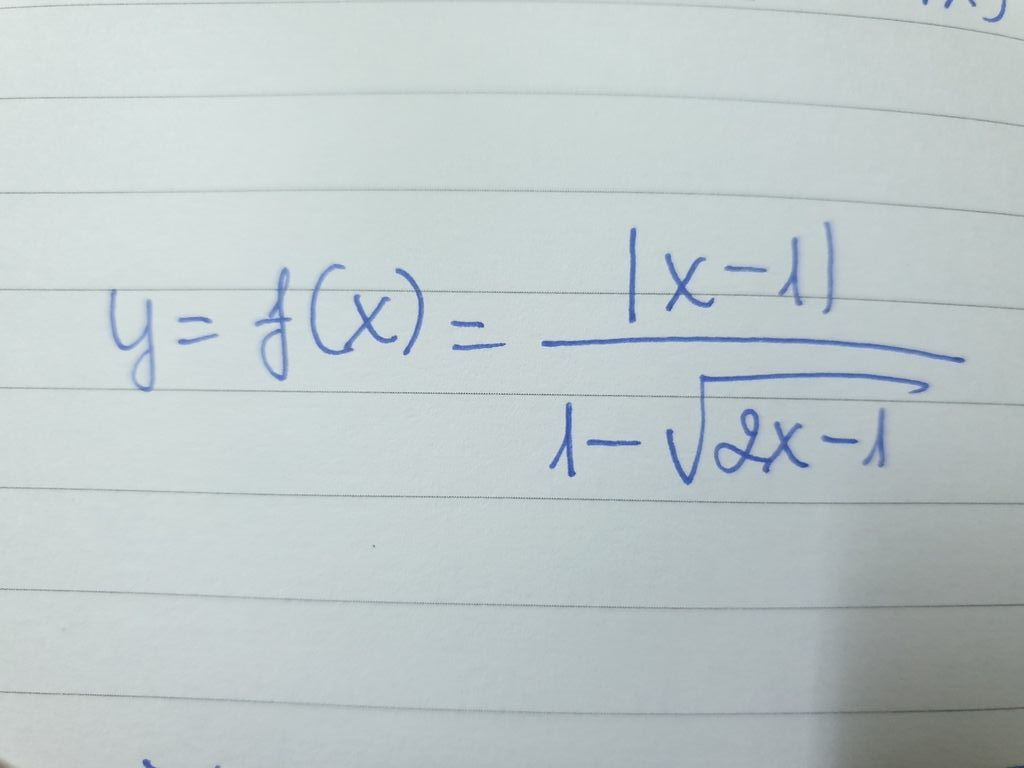 y = f(x) = |x-1| / (1-√(2x-1))